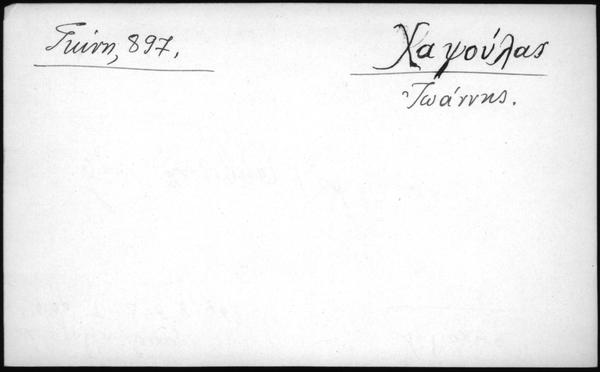 Γκίνη, 897.
Χαψούλας
Ἰωάννης.